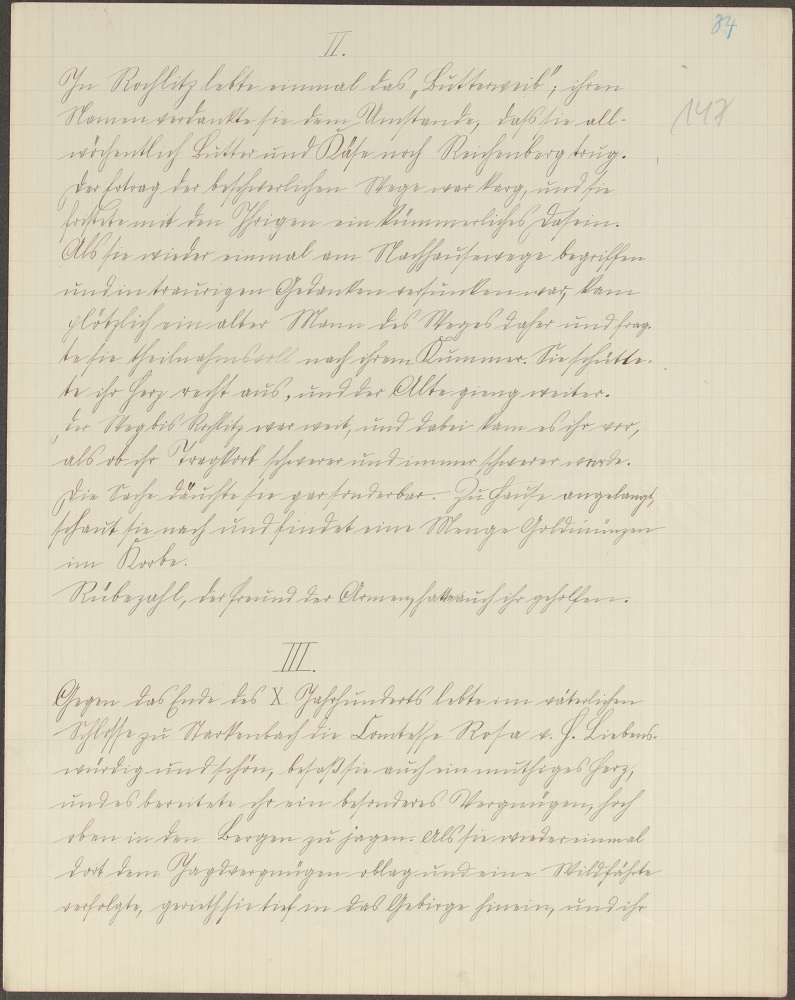 84
II.
147
In Rochlitz lebte einmal das „Butterweib", ihren
Namen verdankte sie dem Umstande, dass sie all-
wöchentlich Butter und Käse nach Reichenberg trug.
Der Ertrag der beschwerlichen Wege war karg, und sie
fristete mit den Ihrigen ein kümmerliches Dasein.
Als sie wieder einmal am Nachhausewege begriffen
und in traurigen Gedanken versunken war, kam
plötzlich ein alter Mann des Weges daher und frag-
te sie theilnahmsvoll nach ihrem Kummer. Sie schütte-
te ihr Herz recht aus, und der Alte gieng weiter.
Der Weg bis Rochlitz war weit, und dabei kam es ihr vor,
als ob ihr Tragkorb schwerer und immer schwerer werde.
Die Sache däuchte sie gar sonderbar. Zu Hause angelangt,
schaut sie nach und findet eine Menge Goldmünzen
im Korbe.
Rübezahl, der Freund der Armen, hatte auch ihr geholfen.
III.
Gegen das Ende des X Jahrhunderts lebte im väterlichen
Schlosse zu Starkenbach die Comtesse Rosa v. H. Liebens-
würdig und schön, besaß sie auch ein muthiges Herz,
und es bereitete ihr ein besonderes Vergnügen, hoch
oben in den Bergen zu jagen. Als sie wieder einmal
dort dem Jagdvergnügen oblag und eine Wildfährte
verfolgte, gerieth sie tief in das Gebirge hinein, und ihr